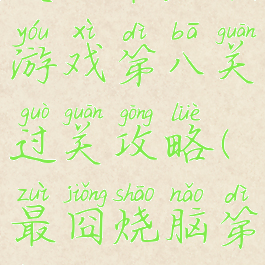 yóu xì dì bā guān
游戏第八关
guò guān gōng lüè
过关攻略(
zuì jiǒng shāo nǎo dì
最囧烧脑第